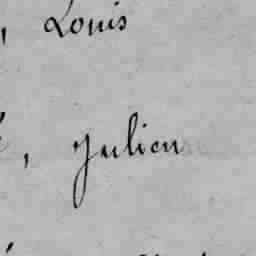 , Louis
, Julien